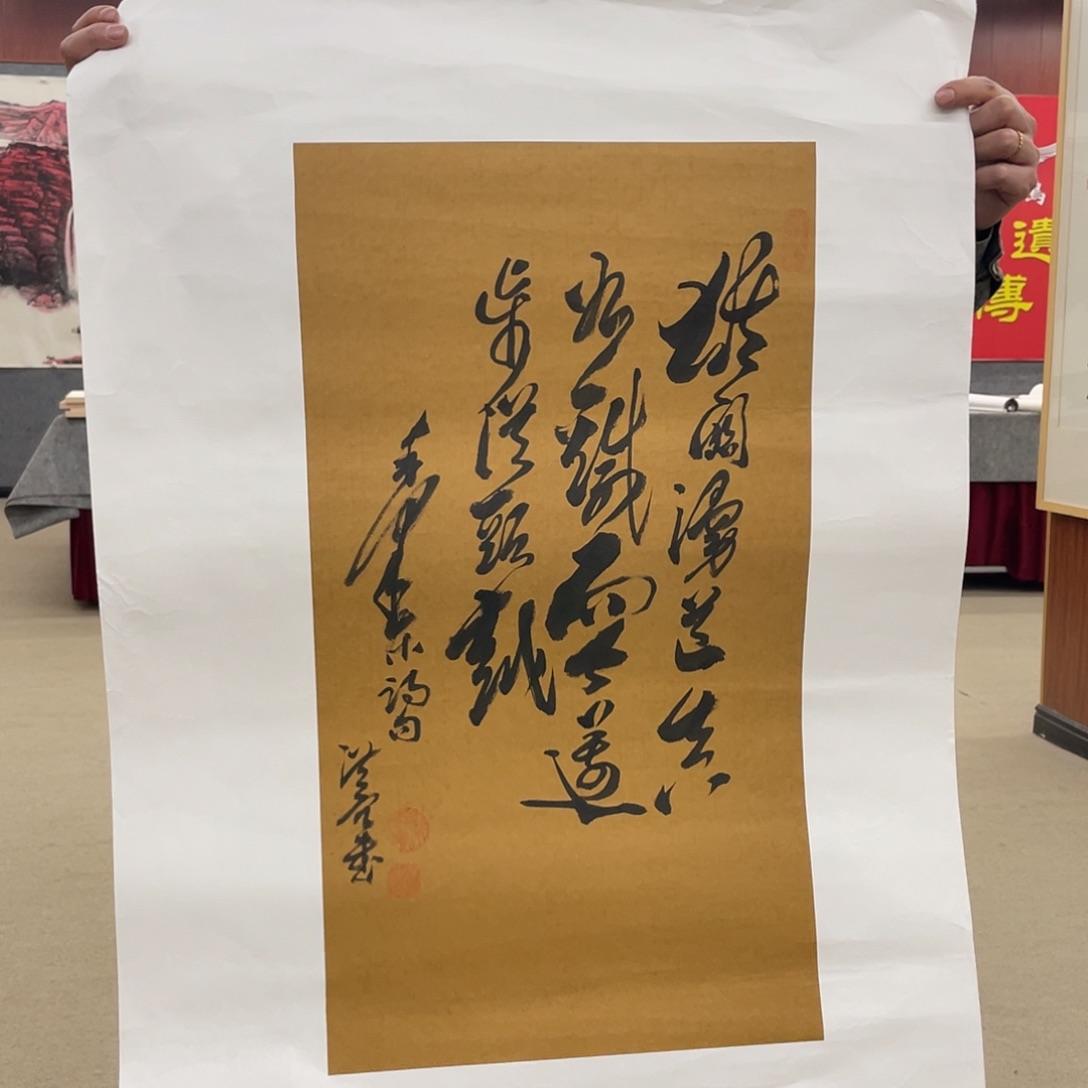 雄關漫道真
如鐵而今邁
步從頭越
毛澤東詞句
遺
傳